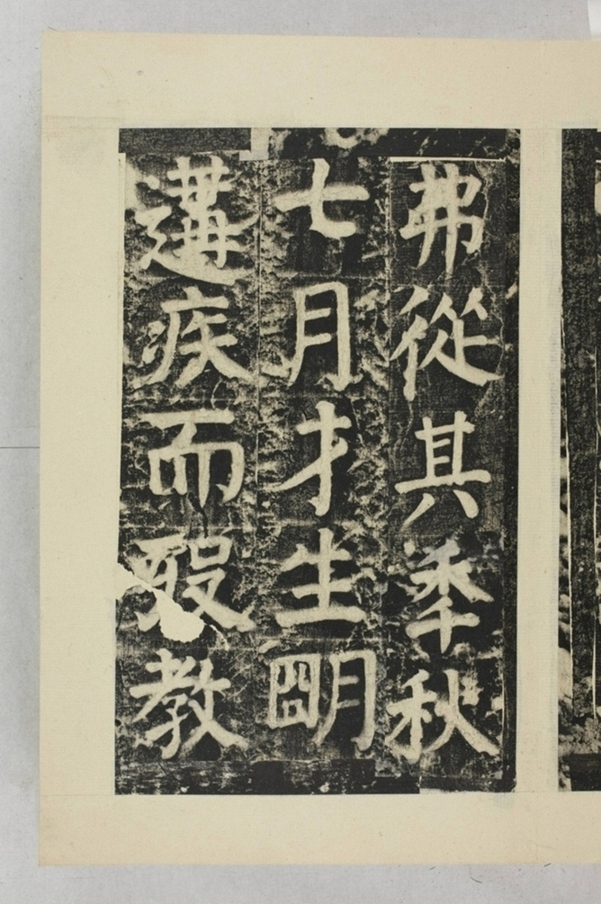 弗從其季秋
七月才生朙
遘疾而殁教